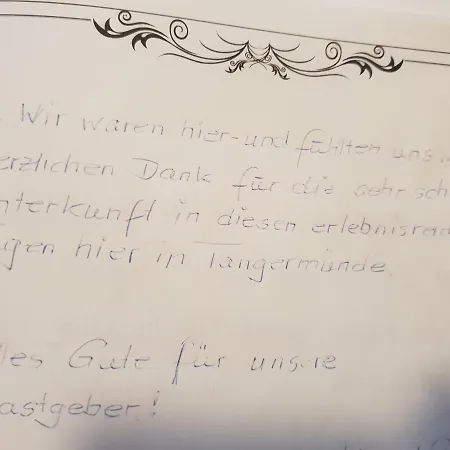 . Wir waren hier-und fühlten uns
erzlichen Dank für die sehr sch
nterkunft in diesen erlebnisre
gen hier in Tangermünde.
les Gute für unsere
astgeber!